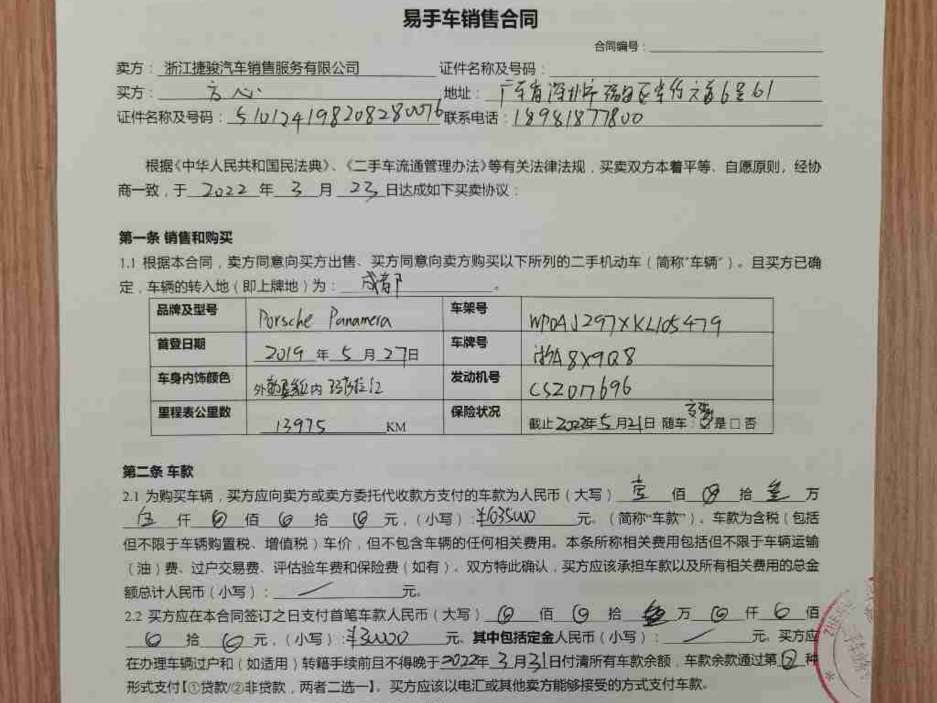 易手车销售合同
合同编号：
卖方：浙江捷骏汽车销售服务有限公司 证件名称及号码：
买方：方心 地址：广东省深圳市福田区 6号61
证件名称及号码：510124198208280076 联系电话：18981877800
根据《中华人民共和国民法典》、《二手车流通管理办法》等有关法律法规，买卖双方本着平等、自愿原则，经协
商一致，于 2022 年 3 月 23 日达成如下买卖协议：
第一条 销售和购买
1.1 根据本合同，卖方同意向买方出售、买方同意向卖方购买以下所列的二手机动车（简称“车辆”）。且买方已确
定，车辆的转入地（即上牌地）为：成都。
品牌及型号 Porsche Panamera 车架号 WP0AJ297XKL105479
首登日期 2019 年 5 月 27日 车牌号 浙A8X9Q8
车身内饰颜色 外 内 发动机号 CSZ017696
里程表公里数 13975 KM 保险状况 截止2022年5月21日 随车：☑是□否
第二条 车款
2.1 为购买车辆，买方应向卖方或卖方委托代收款方支付的车款为人民币（大写）壹 佰 零 拾 叁 万
伍 仟 零 佰 零 拾 零 元，（小写）：¥1035000 元。（简称“车款”）。车款为含税（包括
但不限于车辆购置税、增值税）车价，但不包含车辆的任何相关费用。本条所称相关费用包括但不限于车辆运输
（油）费、过户交易费、评估验车费和保险费（如有）。双方特此确认，买方应该承担车款以及所有相关费用的总金
额总计人民币（小写）：／元。
2.2 买方应在本合同签订之日支付首笔车款人民币（大写） 佰 拾 叁 万 仟 佰
拾 元，（小写）：¥30000 元。其中包括定金人民币（小写）：／元。买方应
在办理车辆过户和（如适用）转籍手续前且不得晚于2022年 3月31日付清所有车款余额，车款余款通过第②种
形式支付【①贷款/②非贷款，两者二选一】。买方应该以电汇或其他卖方能够接受的方式支付车款。